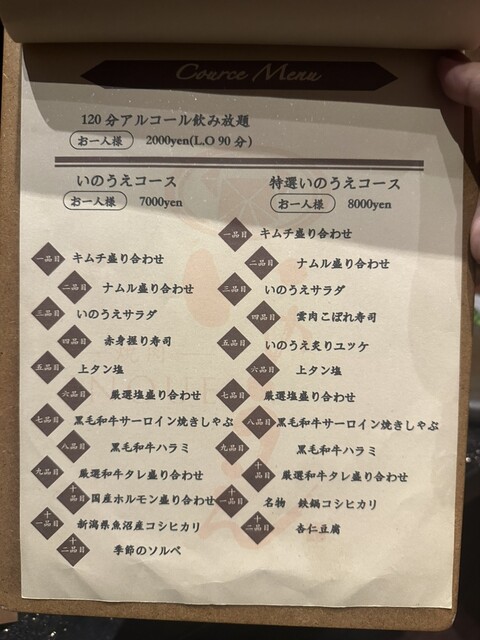 Cource Menu
120分アルコール飲み放題
お一人様 2000yen(L.O 90分)
いのうえコース
お一人様 7000yen
一品目 キムチ盛り合わせ
二品目 ナムル盛り合わせ
三品目 いのうえサラダ
四品目 赤身握り寿司
五品目 上タン塩
六品目 厳選塩盛り合わせ
七品目 黒毛和牛サーロイン焼きしゃぶ
八品目 黒毛和牛ハラミ
九品目 厳選和牛タレ盛り合わせ
十品目 国産ホルモン盛り合わせ
十一品目 新潟県魚沼産コシヒカリ
十二品目 季節のソルベ
特選いのうえコース
お一人様 8000yen
一品目 キムチ盛り合わせ
二品目 ナムル盛り合わせ
三品目 いのうえサラダ
四品目 雲肉こぼれ寿司
五品目 いのうえ炙りユッケ
六品目 上タン塩
七品目 厳選塩盛り合わせ
八品目 黒毛和牛サーロイン焼きしゃぶ
九品目 黒毛和牛ハラミ
十品目 厳選和牛タレ盛り合わせ
十一品目 名物 鉄鍋コシヒカリ
十二品目 杏仁豆腐